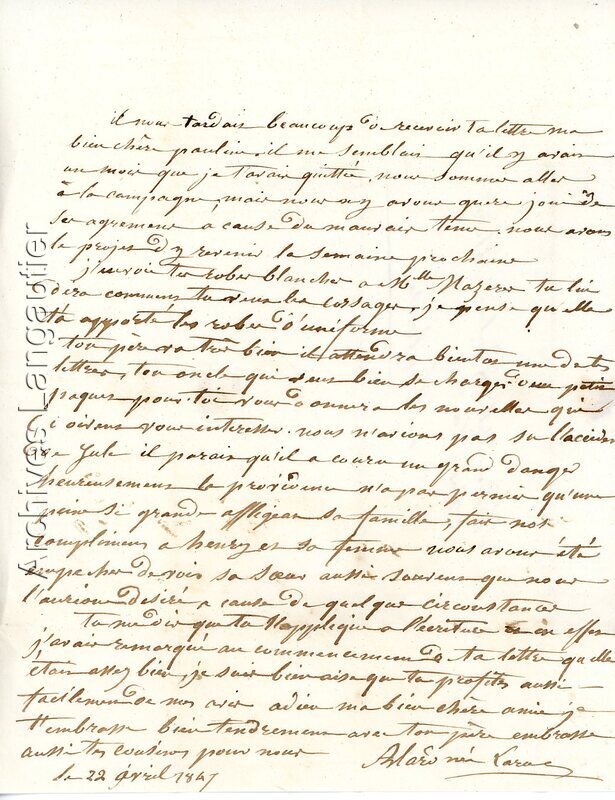 il nous tardais beaucoup de recevoir ta lettre ma
bien chère pauline. il me semblais qu'il y avais
un mois que je t'avais quittée, nous somme aller
à la campagne, mais nous ny avons guere joui de
ses agremens a cause du mauvais tems. nous avons
le projet d'y revenir la semaine prochaine
j'envois tes robes blanches a Mlle Nazeres tu lui
dira comment tu veux les corsages. je pense qu'elle
t'a apporté les robes d'uniforme
ton père va très bien il attendra bientos une de tes
lettres, ton oncle qui veus bien se charger d'un petit
paques pour toi vous donnera les nouvelles qui
doivens vous interesser. nous n'avions pas su l'acciden
de Jule il parais qu'il a couru un grand danger
heureusement la providence n'a pas permis qu'une
peine si grande affligeas sa famille, fais nos
complimens a henry et sa femme nous avons été
empecher de voir sa sœur aussi souvens que nous
l'aurions désiré a cause de quelque circonstance
tu me dis que tu t'applique a l'écriture en effet
j'avais remarqué au commencement de ta lettre qu'elle
étais assez bien, je suis bien aise que tu profites aussi
facilement de mes avis adieu ma bien chere amie je
t'embrasse bien tendrement avec ton père embrasse
aussi tes cousines pour nous
née
le 22 avril 1847
Archives Langautier